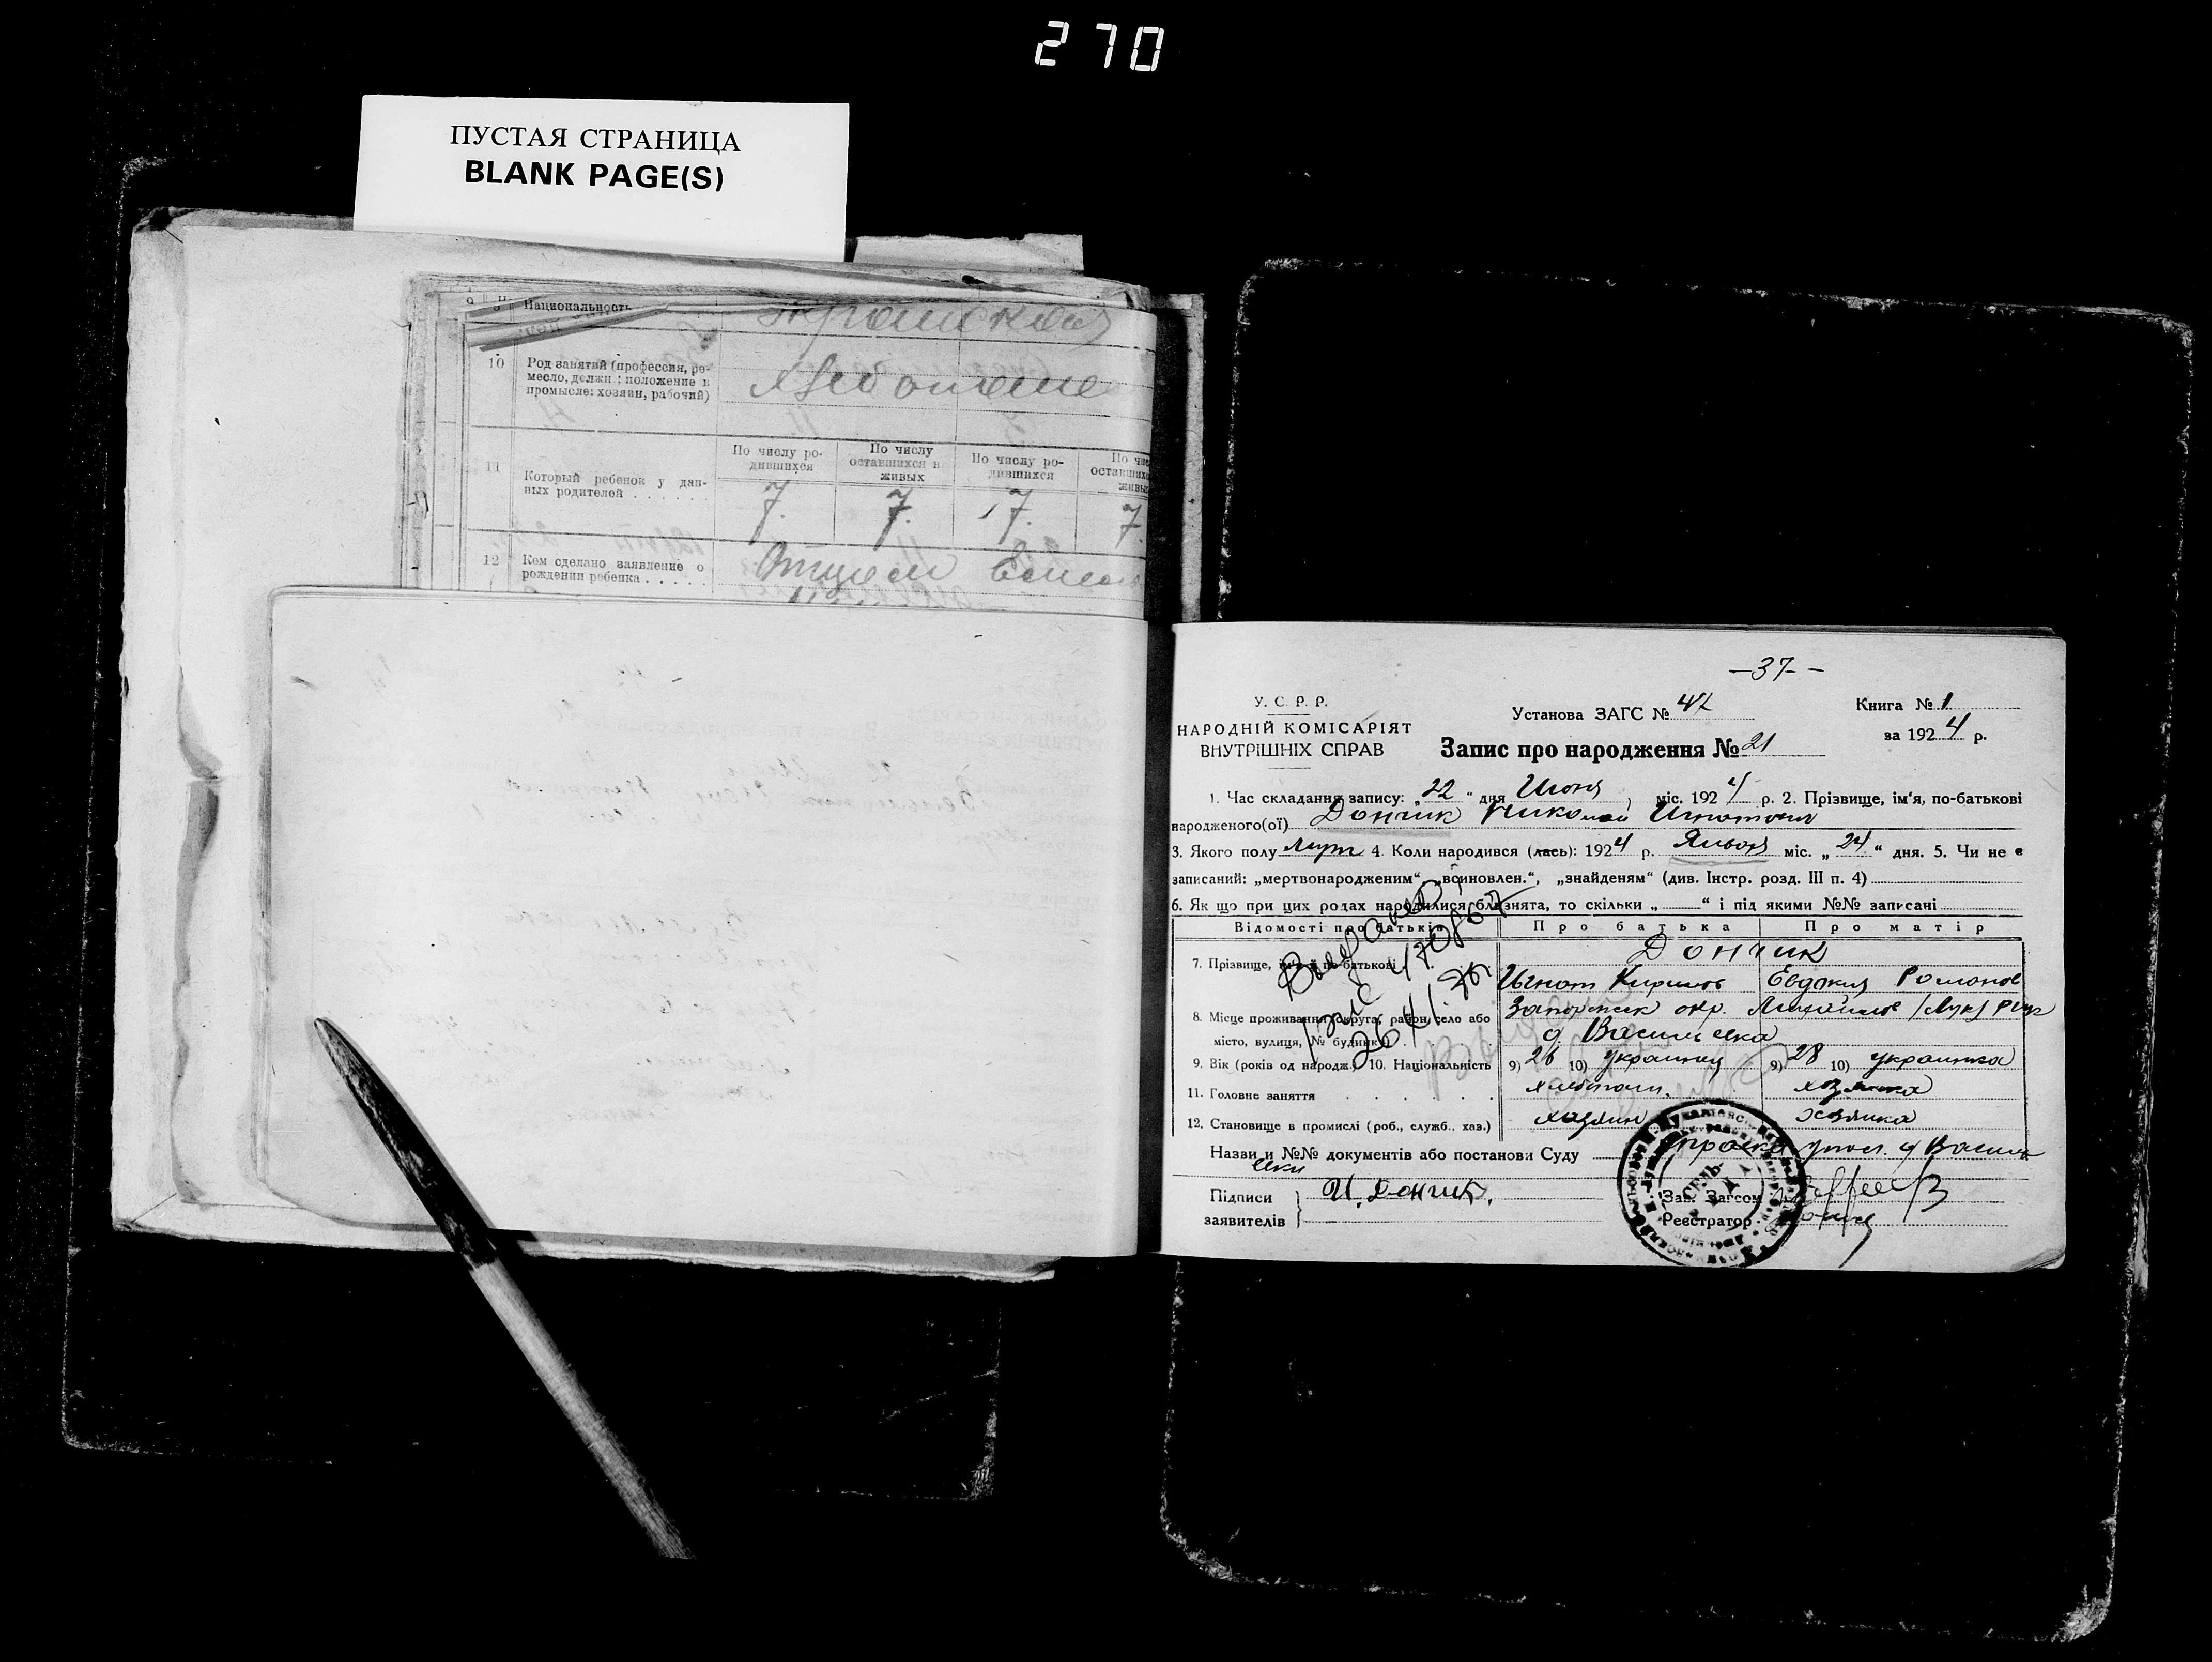 270
ПУСТАЯ СТРАНИЦА
BLANK PAGE(S)
9 Национальность
10 Род занятий (профессия, ре-
месло, должн.: положение в
промысле: хозяин, рабочий)
11 Который ребенок у дан-
ных родителей . . . . . . .
По числу ро-
дившихся
По числу
оставшихся в
живых
По числу ро-
дившихся
7. 7. 7. 7.
12 Кем сделано заявление о
рождении ребенка . . . . .
Отцем
-37-
У. С. Р. Р.
НАРОДНІЙ КОМІСАРІЯТ
ВНУТРІШНІХ СПРАВ
Установа ЗАГС №
Книга № 1
за 1924 р.
Запис про народження № 21
1. Час складання запису: „22" дня Июня міс. 1924 р. 2. Прізвище, ім'я, по-батькові
народженого(ої) Дончик Николай Игнатович
3. Якого полу муж 4. Коли народився (лась): 1924 р. Января міс. „24" дня. 5. Чи не є
записаний: „мертвонародженим", „всиновлен.", „знайденям" (див. Інстр. розд. III п. 4)
6. Як що при цих родах народилися близнята, то скільки „ " і під якими №№ записані
Відомості про батьків Про батька Про матір
7. Прізвище, ім'я й по-батькові
Дончик
Игнат Кирилов Евдокия Романов
8. Місце проживання (округа, район, село або
місто, вулиця, № будинку)
Запорожск окр.
д. Васильевка
9. Вік (років од народж.) 10. Національність 9) 26 10) украинец 9) 28 10) украинка
11. Головне заняття
12. Становище в промислі (роб., служб., хаз.) хозяин хозяйка
Назви и №№ документів або постанови Суду
Підписи
заявителів
И. Дончик.
Зав. Загсом
Реєстратор
26/XI